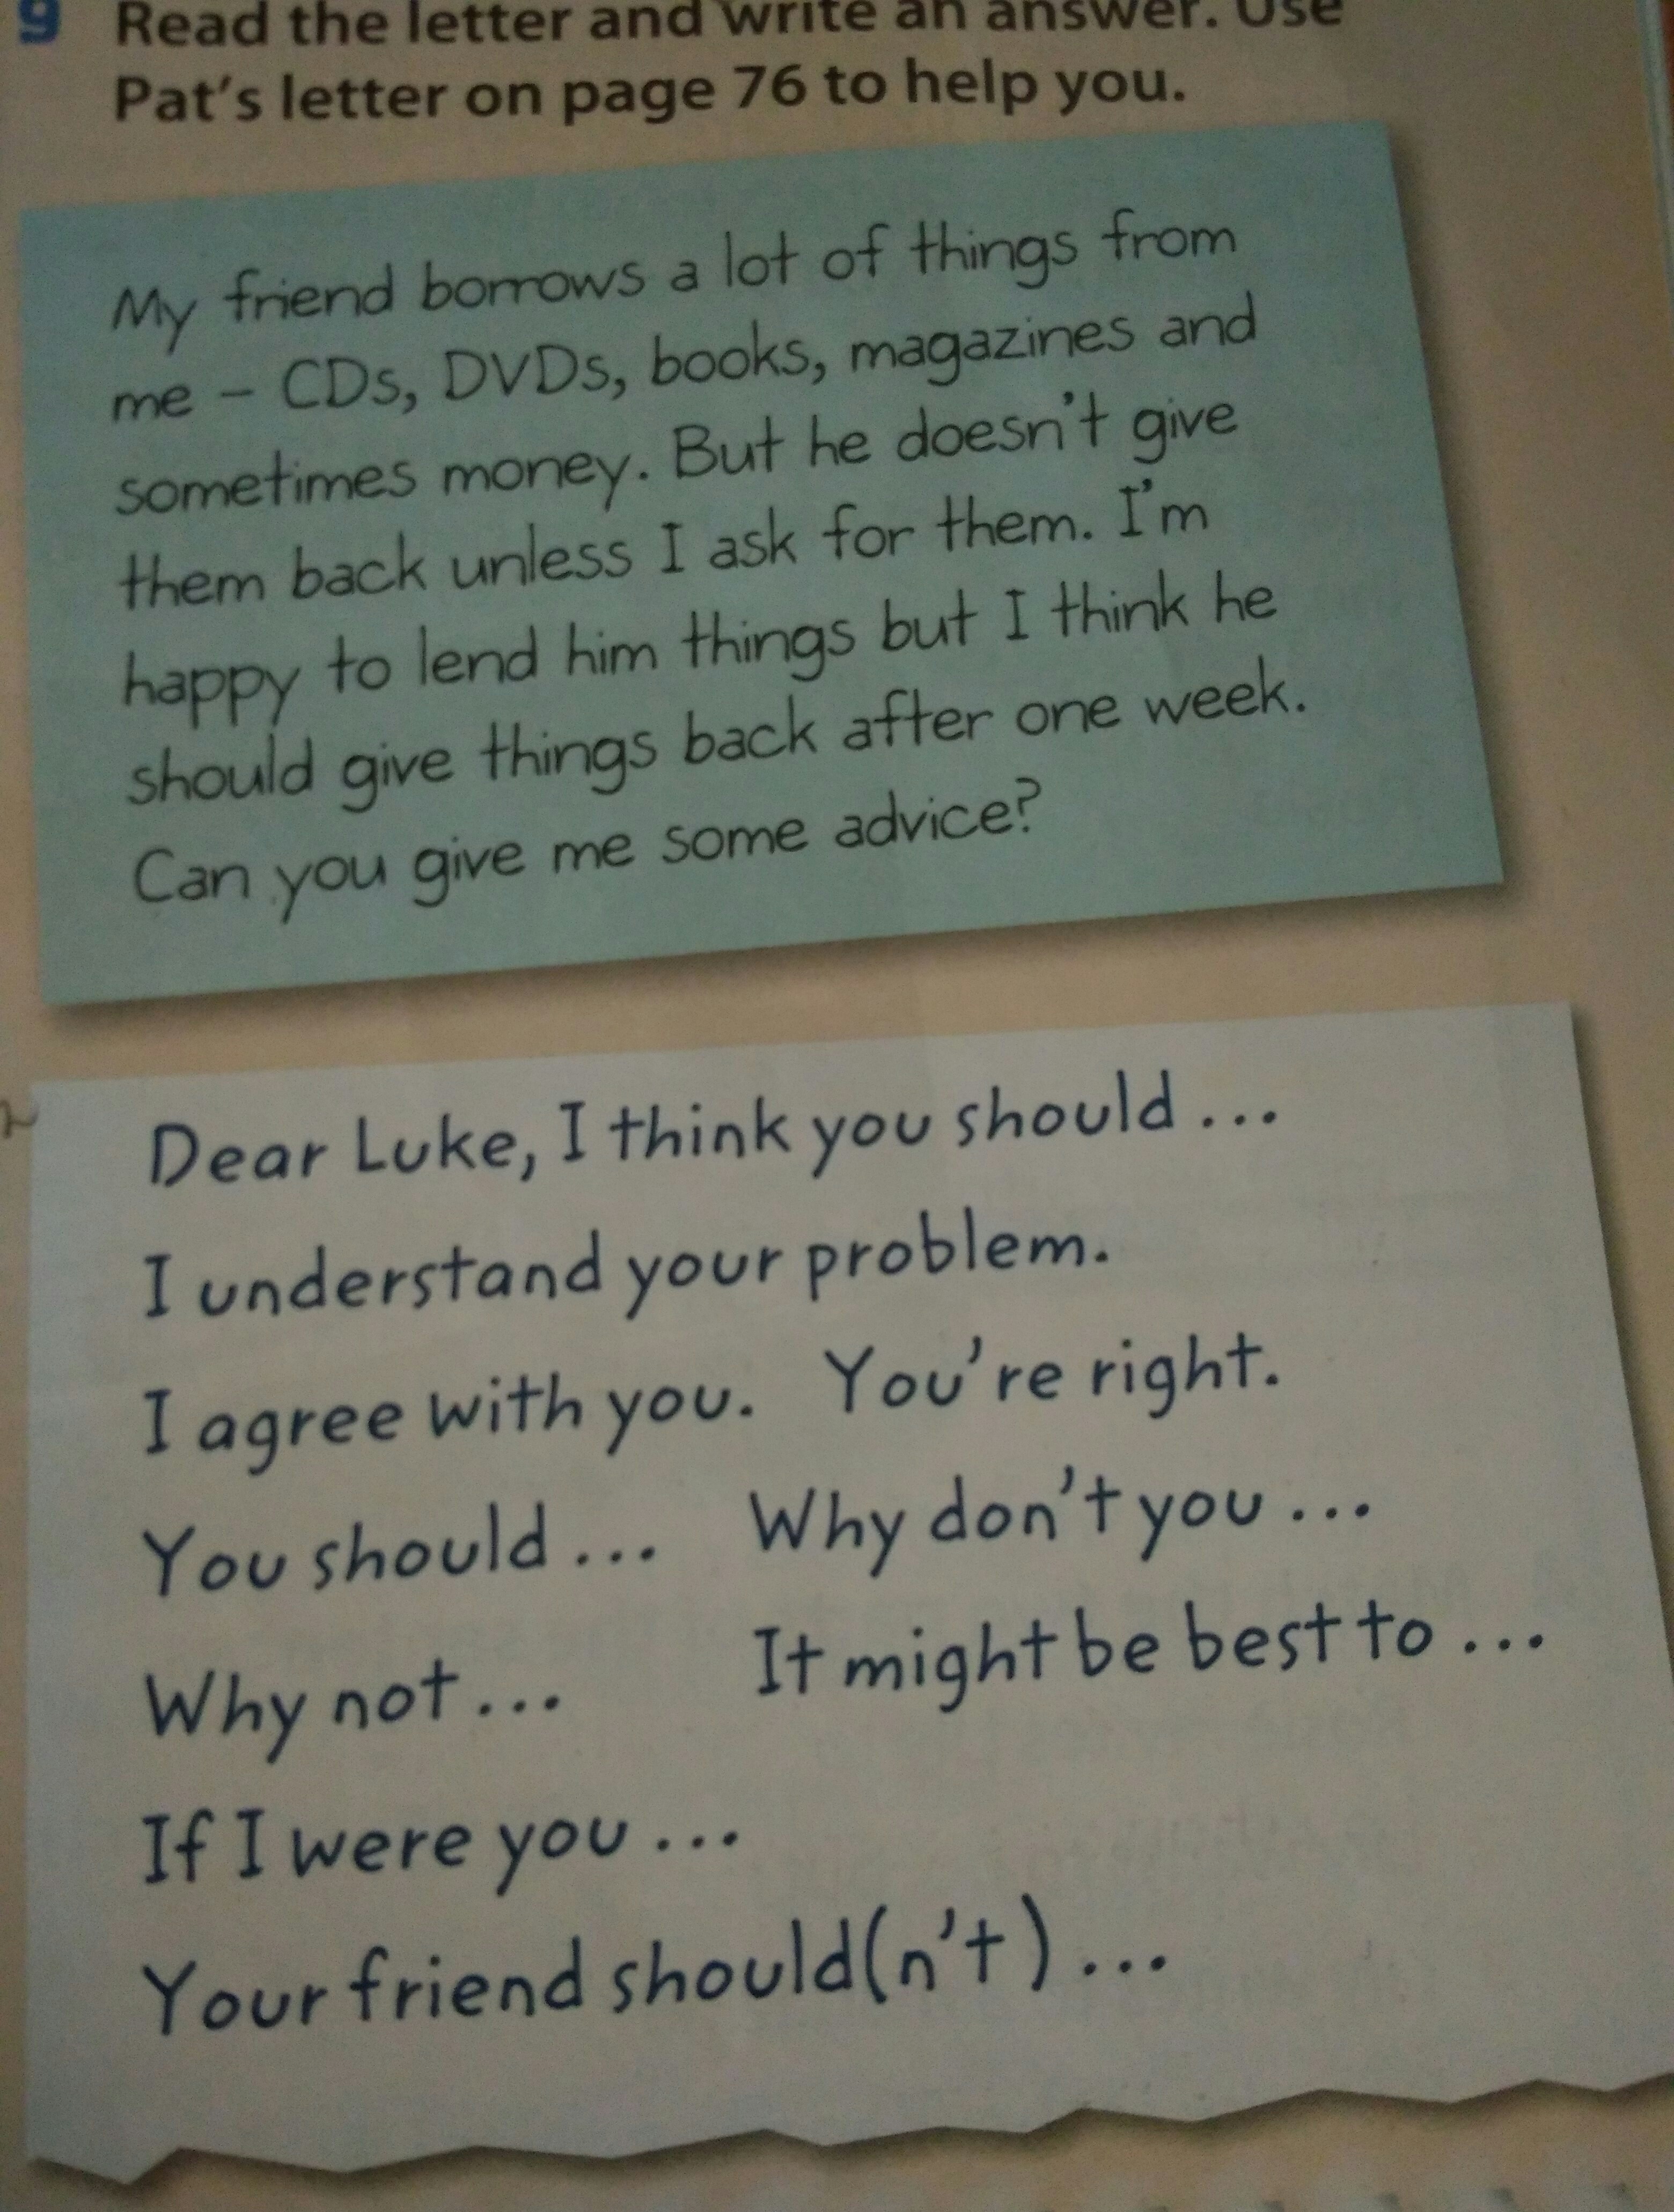 9 Read the letter and write an answer. Use
Pat's letter on page 76 to help you.
My friend borrows a lot of things from
me – CDs, DVDs, books, magazines and
sometimes money. But he doesn't give
them back unless I ask for them. I'm
happy to lend him things but I think he
should give things back after one week.
Can you give me some advice?
Dear Luke, I think you should ...
I understand your problem.
I agree with you. You're right.
You should ... Why don't you ...
Why not ... It might be best to ...
If I were you ...
Your friend should(n't) ...